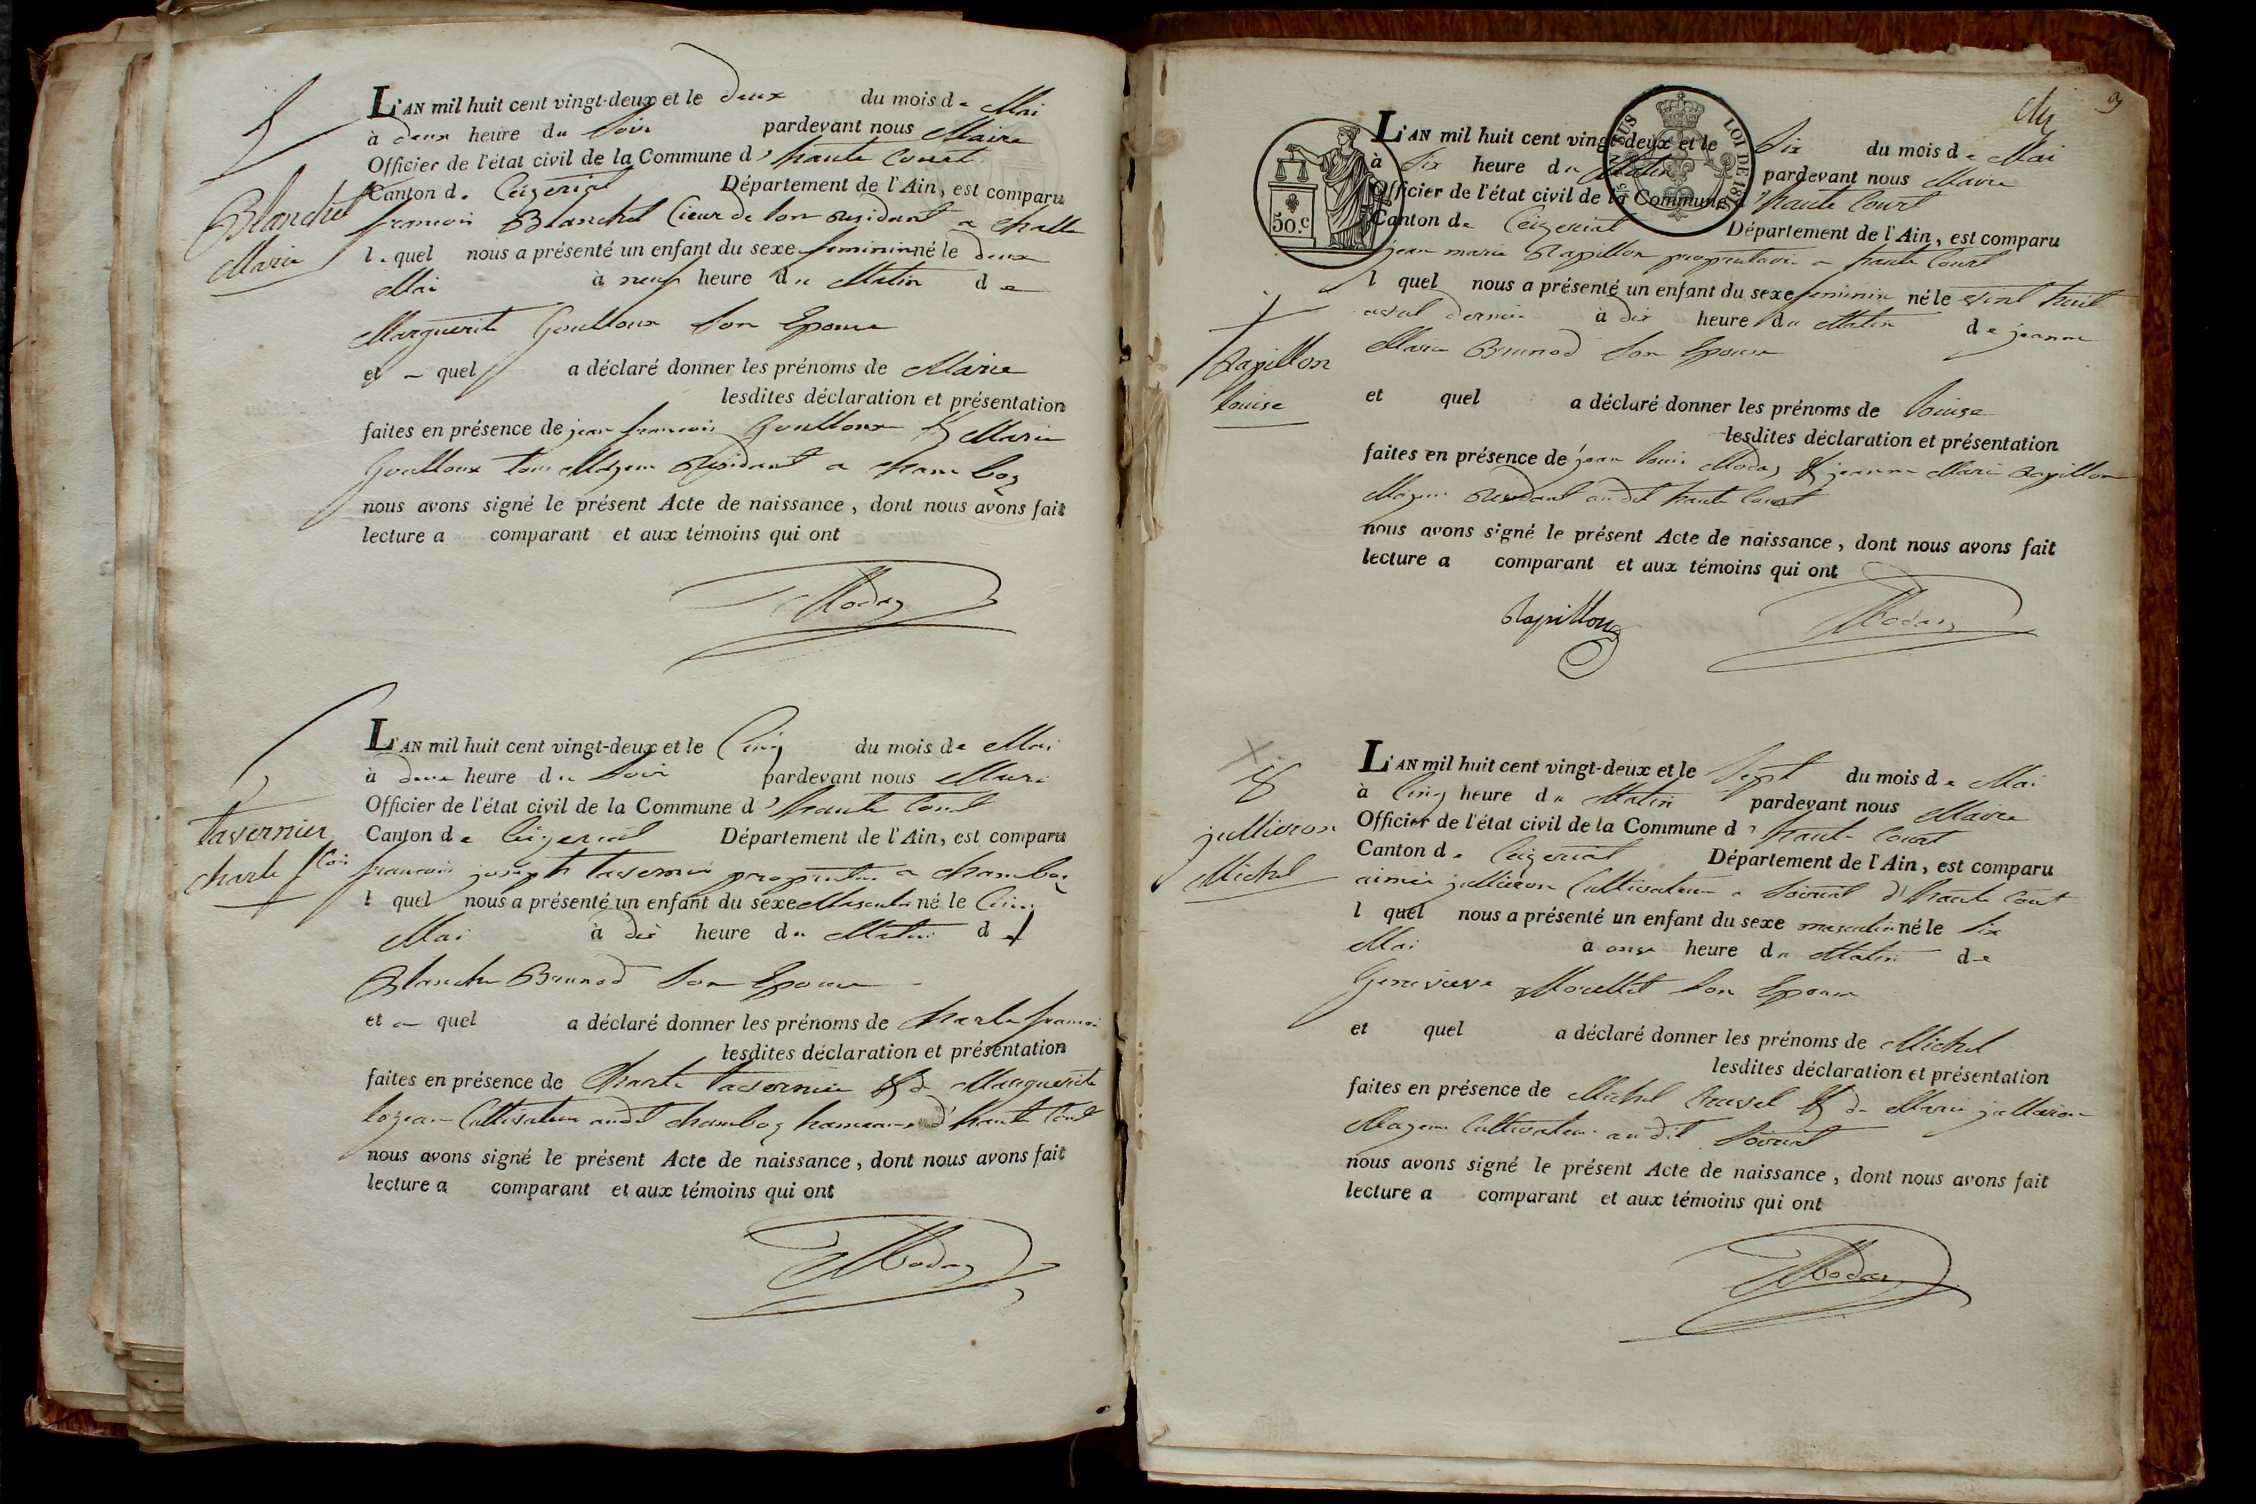 5
Blanchet
Marie
L'AN mil huit cent vingt-deux et le deux du mois de Mai
à deux heure du Soir pardevant nous Maire
Officier de l'état civil de la Commune d'haute Court
Canton de Ceizeriat Département de l'Ain, est comparu
francois Blanchet residant a Challe
lequel nous a présenté un enfant du sexe feminin né le deux
Mai à neuf heure du Matin de
Marguerite Goulloux Son Epouse
et quel a déclaré donner les prénoms de Marie
lesdites déclaration et présentation
faites en présence de jean francois Goulloux & Marie
Goulloux tous Majeur Residant a Chamboz
nous avons signé le présent Acte de naissance, dont nous avons fait
lecture a comparant et aux témoins qui ont
Modas
tavernier
charle f.cois
L'AN mil huit cent vingt-deux et le Cinq du mois de Mai
à deux heure du Soir pardevant nous Maire
Officier de l'état civil de la Commune d'haute Court
Canton de Ceizeriat Département de l'Ain, est comparu
francois joseph tavernier proprietaire a chamboz
l quel nous a présenté un enfant du sexe Masculin né le Cinq
Mai à dix heure du Matin de
Blanche Brunod Son Epouse
et quel a déclaré donner les prénoms de charle francois
lesdites déclaration et présentation
faites en présence de Charle tavernier & de Marguerite
Cultivateur audit chamboz hameau d'haute Court
nous avons signé le présent Acte de naissance, dont nous avons fait
lecture a comparant et aux témoins qui ont
Modas
9
50.c
LOI DE 1816
7
Rapillon
louise
L'AN mil huit cent vingt-deux et le Six du mois de Mai
à Six heure du Matin pardevant nous Maire
Officier de l'état civil de la Commune d'haute Court
Canton de Ceizeriat Département de l'Ain, est comparu
jean marie Rapillon proprietaire a haute Court
l quel nous a présenté un enfant du sexe feminin né le vint huit
avril dernier à dix heure du Matin de jeanne
Marie Brunod Son Epouse
et quel a déclaré donner les prénoms de louise
lesdites déclaration et présentation
faites en présence de jean louis Modas & jeanne Marie Rapillon
Majeur Residant audit haute Court
nous avons signé le présent Acte de naissance, dont nous avons fait
lecture a comparant et aux témoins qui ont
Rapillon Modas
8
jullieron
Michel
L'AN mil huit cent vingt-deux et le Sept du mois de Mai
à Cinq heure du Matin pardevant nous Maire
Officier de l'état civil de la Commune d'haute Court
Canton de Ceizeriat Département de l'Ain, est comparu
aimé jullieron Cultivateur a d'haute Court
l quel nous a présenté un enfant du sexe masculin né le Six
Mai à onze heure du Matin de
Genevieve Morellet Son Epouse
et quel a déclaré donner les prénoms de Michel
lesdites déclaration et présentation
faites en présence de Michel & de Marie jullieron
Majeur Cultivateur audit
nous avons signé le présent Acte de naissance, dont nous avons fait
lecture a comparant et aux témoins qui ont
Modas